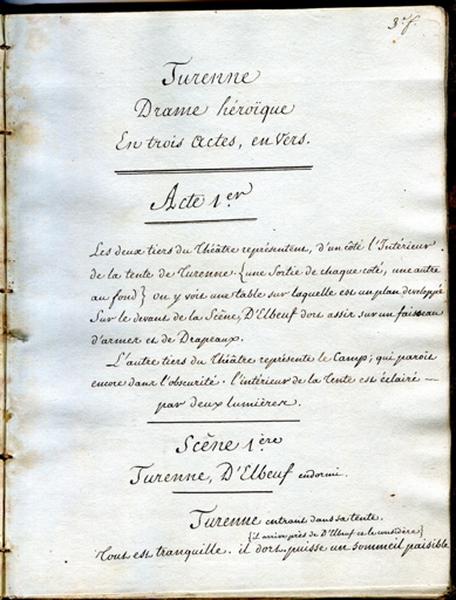 3.e f.
Turenne
Drame héroïque
En trois Actes, en Vers.
Acte 1er
Les deux tiers du Théâtre représentent, d'un côté l'Intérieur
de la tente de Turenne {une Sortie de chaque côté, une autre
au fond} On y voit une table sur laquelle est un plan developpé
Sur le devant de la Scêne, D'Elbeuf dort assis sur un faisseau
d'armes et de Drapeaux.
L'autre tiers du Théâtre représente le Camp; qui paroit
encore dans l'obscurité. l'intérieur de la Tente est éclairé —
par deux lumières.
Scêne 1ère
Turenne, D'Elbeuf endormi.
Turenne entrant dans sa tente.
{il arrive près de D'Elbeuf et le considère}
Tout est tranquille. il dort, puisse un sommeil paisible